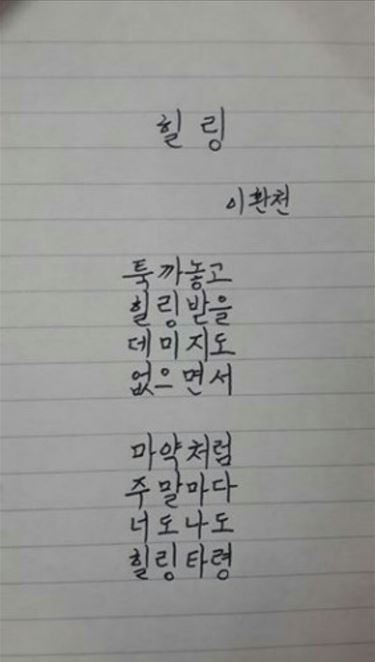 힐링
이환천
툭까놓고
힐링받을
데미지도
없으면서
마약처럼
주말마다
너도나도
힐링타령